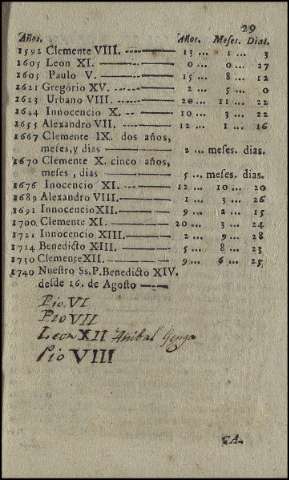 29
Años. Años. Meses. Dias.
1592 Clemente VIII. 13 ... 1 ... 3
1605 Leon XI. 0 ... 0 ... 27
1605 Paulo V. 15 ... 8 ... 12
1621 Gregorio XV. 2 ... 5 ... 0
1623 Urbano VIII. 20 ... 11 ... 22
1644 Innocencio X. 10 ... 3 ... 22
1655 Alexandro VII. 12 ... 1 ... 16
1667 Clemente IX. dos años,
meses, y dias 2 ... meses. dias.
1670 Clemente X. cinco años,
meses, dias 5 ... meses. dias.
1676 Inocencio XI. 12 ... 10 ... 20
1689 Alexandro VIII. 1 ... 3 ... 26
1691 Innocencio XII. 9 ... 2 ... 15
1700 Clemente XI. 20 ... 3 ... 24
1721 Innocencio XIII. 2 ... 9 ... 28
1724 Benedicto XIII. 5 ... 8 ... 23
1730 Clemente XII. 9 ... 6 ... 25
1740 Nuestro Ss. P. Benedicto XIV.
desde 16. de Agosto
Pio VI
Pio VII
Leon XII Anibal Genga
Pio VIII
CA.